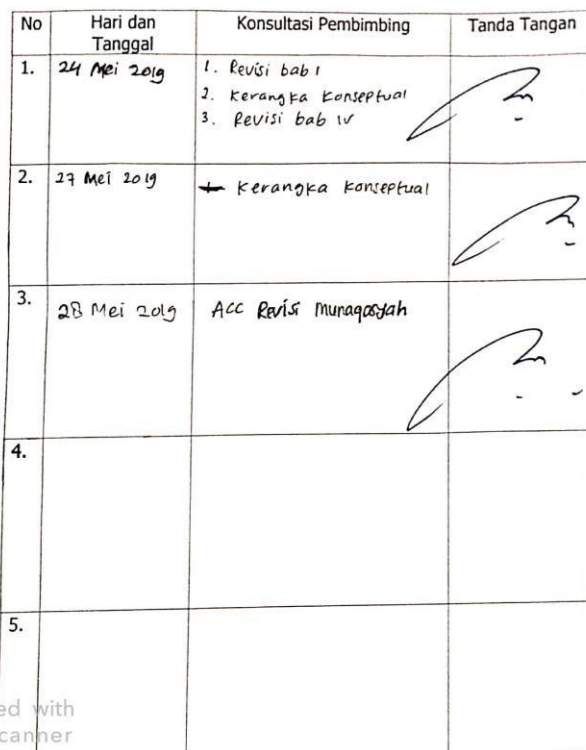 No Hari dan Tanggal Konsultasi Pembimbing Tanda Tangan
1. 24 Mei 2019 1. Revisi bab I
2. Kerangka Konseptual
3. Revisi bab IV
2. 27 Mei 2019 Kerangka Konseptual
3. 28 Mei 2019 ACC Revisi Munaqosyah
4.
5.
ed with
canner